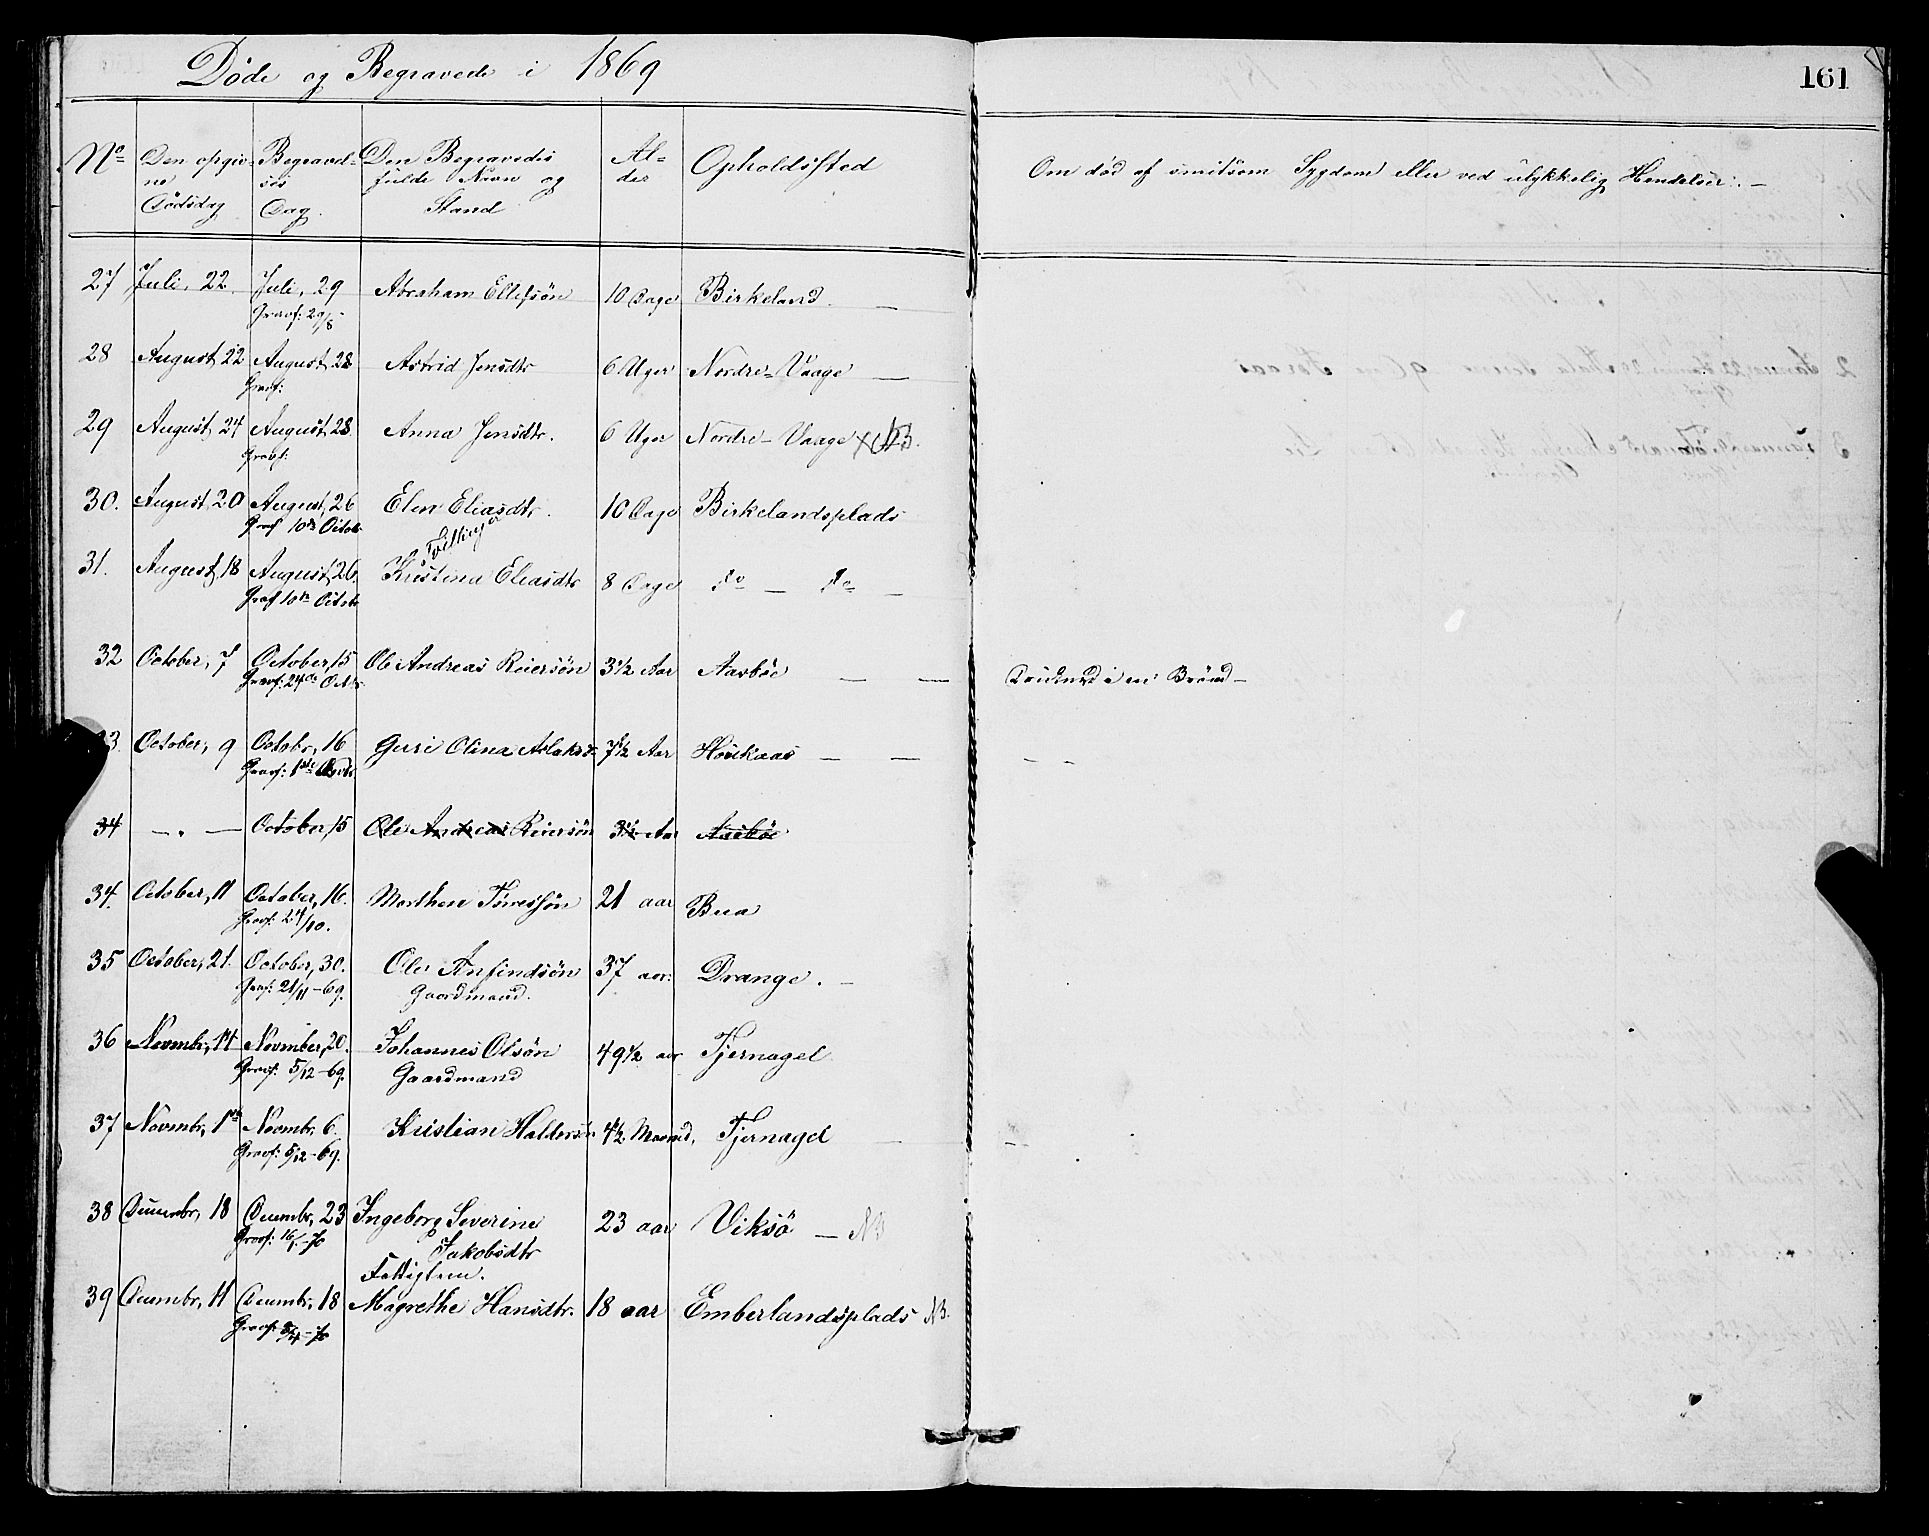 Døde og Begravede i 1869
161
No Den opgiv- Begravel- Den Begravedes Al- Opholdssted Om død af smitsom Sygdom eller ved ulykkelig Hendelser. —
ne ses fulde Navn og der
Dødsdag Dag. Stand
27 Juli, 22 Juli, 29 Abraham Ellefsön 10 Dage Birkeland —
Graof: 29/8
28 August, 22 August, 28 Astrid Jensdtr 6 Uger Nordre-Vaage —
Graof:
29 August, 24 August, 28 Anna Jensdtr. 6 Uger Nordre-Vaage × NB.
Graof:
30. August, 20 August, 26 Elen Eliasdtr. 10 Dage Birkelandsplads
Graof 10de Octob.
Tvillinger
31. August, 18 August, 26. Kristina Eliasdtr 8 Dage do — do —
Graof 10de Octob
32 October, 7 October, 15 Ole Andreas Reiersön 3½ Aar Aasböe — — Druknet i en Brönd —
Graof: 24de Octbr
33 October, 9 Octobr, 16 Guri Olina Aslaksd. 7½ Aar Höikaas — — — —
Graof: 1ste
34 — " — October, 15 Ole Andreas Reiersön 3½ Aar Aasböe
34. October, 11 October, 16. Morthen Törresön 21 aar Bua
Graof: 24/10.
35 October, 21. October, 30. Ole Anfindsön 37 aar. Drange. —
Graof: 21/11 – 69. Gaardmand.
36 Novmbr, 14 November, 20. Johannes Olsön 49½ aar Tjernagel
Graof: 5/12 – 69. Gaardmand
37 Novmbr, 1ste Novmbr, 6. Kristian Haldorsön 4½ Maaned, Tjernagel — —
Graof: 5/12 – 69.
38 Decembr, 18 Decembr, 23 Ingeborg Severine 23 aar Viksö — NB
Graof: 16/1 – 70 Jakobsdtr
Fattiglem.
39 Decembr, 11 Decembr, 18 Magrethe Hansdtr. 18 aar Emberlandsplads NB.
Graof: 3/4 – 70